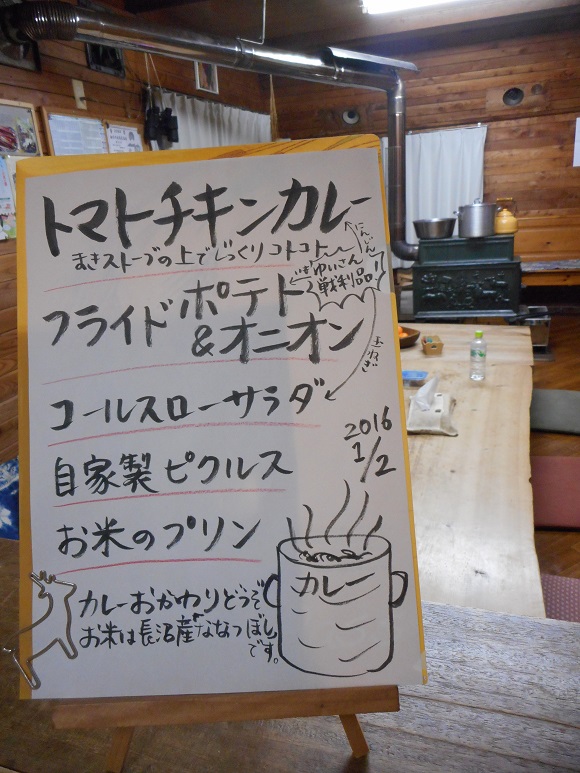 トマトチキンカレー
まきストーブの上でじっくりコトコト
にんじん
ゆいさん
戦利品!
いも
フライドポテト
&オニオン
玉ねぎ
コールスローサラダ
2016
1/2
自家製ピクルス
お米のプリン
カレー
カレーおかわりどうぞ。
お米は長沼産"ななつぼし"
です。